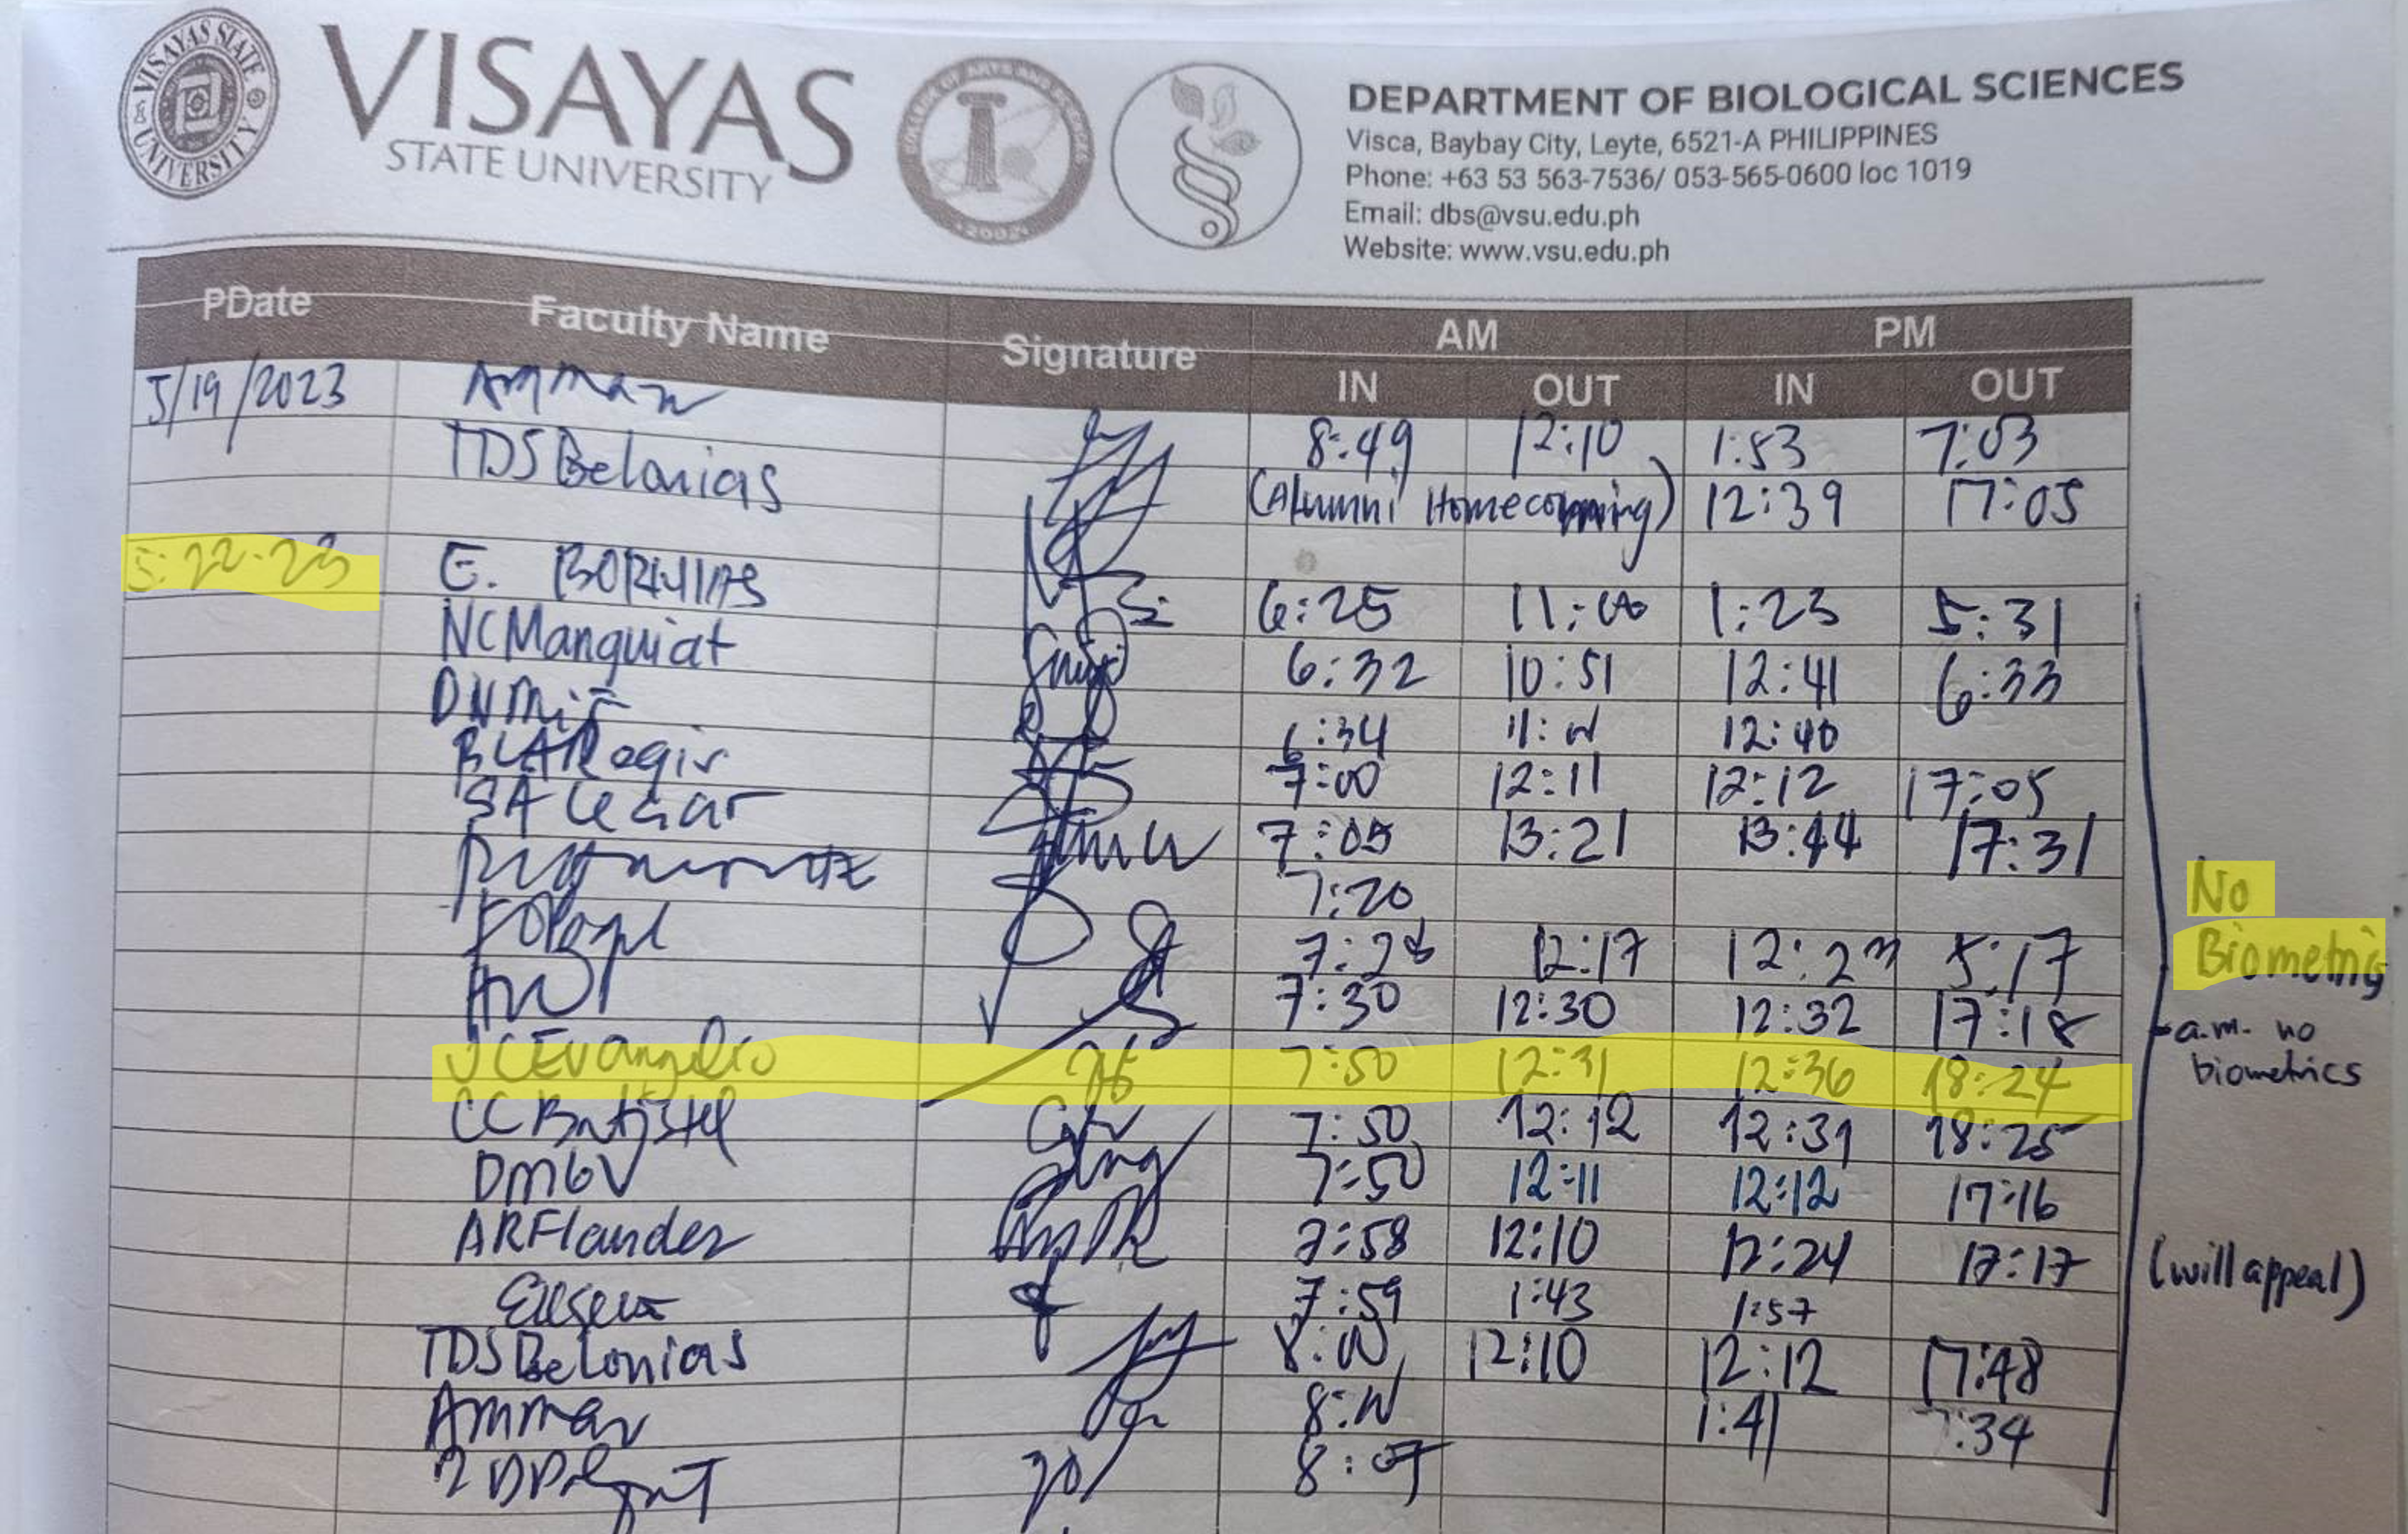 VISAYAS STATE UNIVERSITY
VISAYAS
STATE UNIVERSITY
COLLEGE OF ARTS AND SCIENCES
DEPARTMENT OF BIOLOGICAL SCIENCES
Visca, Baybay City, Leyte, 6521-A PHILIPPINES
Phone: +63 53 563-7536/ 053-565-0600 loc 1019
Email: dbs@vsu.edu.ph
Website: www.vsu.edu.ph
PDate Faculty Name Signature AM PM
IN OUT IN OUT
5/19/2023 Ammar 8:49 12:10 1:53 7:03
TDSBelonias (Alumni Homecoming) 12:39 17:05
5-22-23 E. BORINAS 6:25 11:00 1:23 5:31
NCManguiat 6:32 10:51 12:41 6:33
6:34 12:40
7:00 12:11 12:12 17:05
SA Cesar 7:05 13:21 13:44 17:31
7:20
No
12:17 5:17
Biometrics
7:30 12:30 12:32 17:18
a.m. no
biometrics
JCEvangelio 7:50 12:31 12:36 18:24
CCBatistel 7:50 12:12 12:31 18:25
DMGV 7:50 12:11 12:12 17:16
ARFlandez 7:58 12:10 17:17
(will appeal)
7:59 1:43 1:57
TDSBelonias 8:00 12:10 12:12 17:48
Ammar 1:41 7:34
8:07